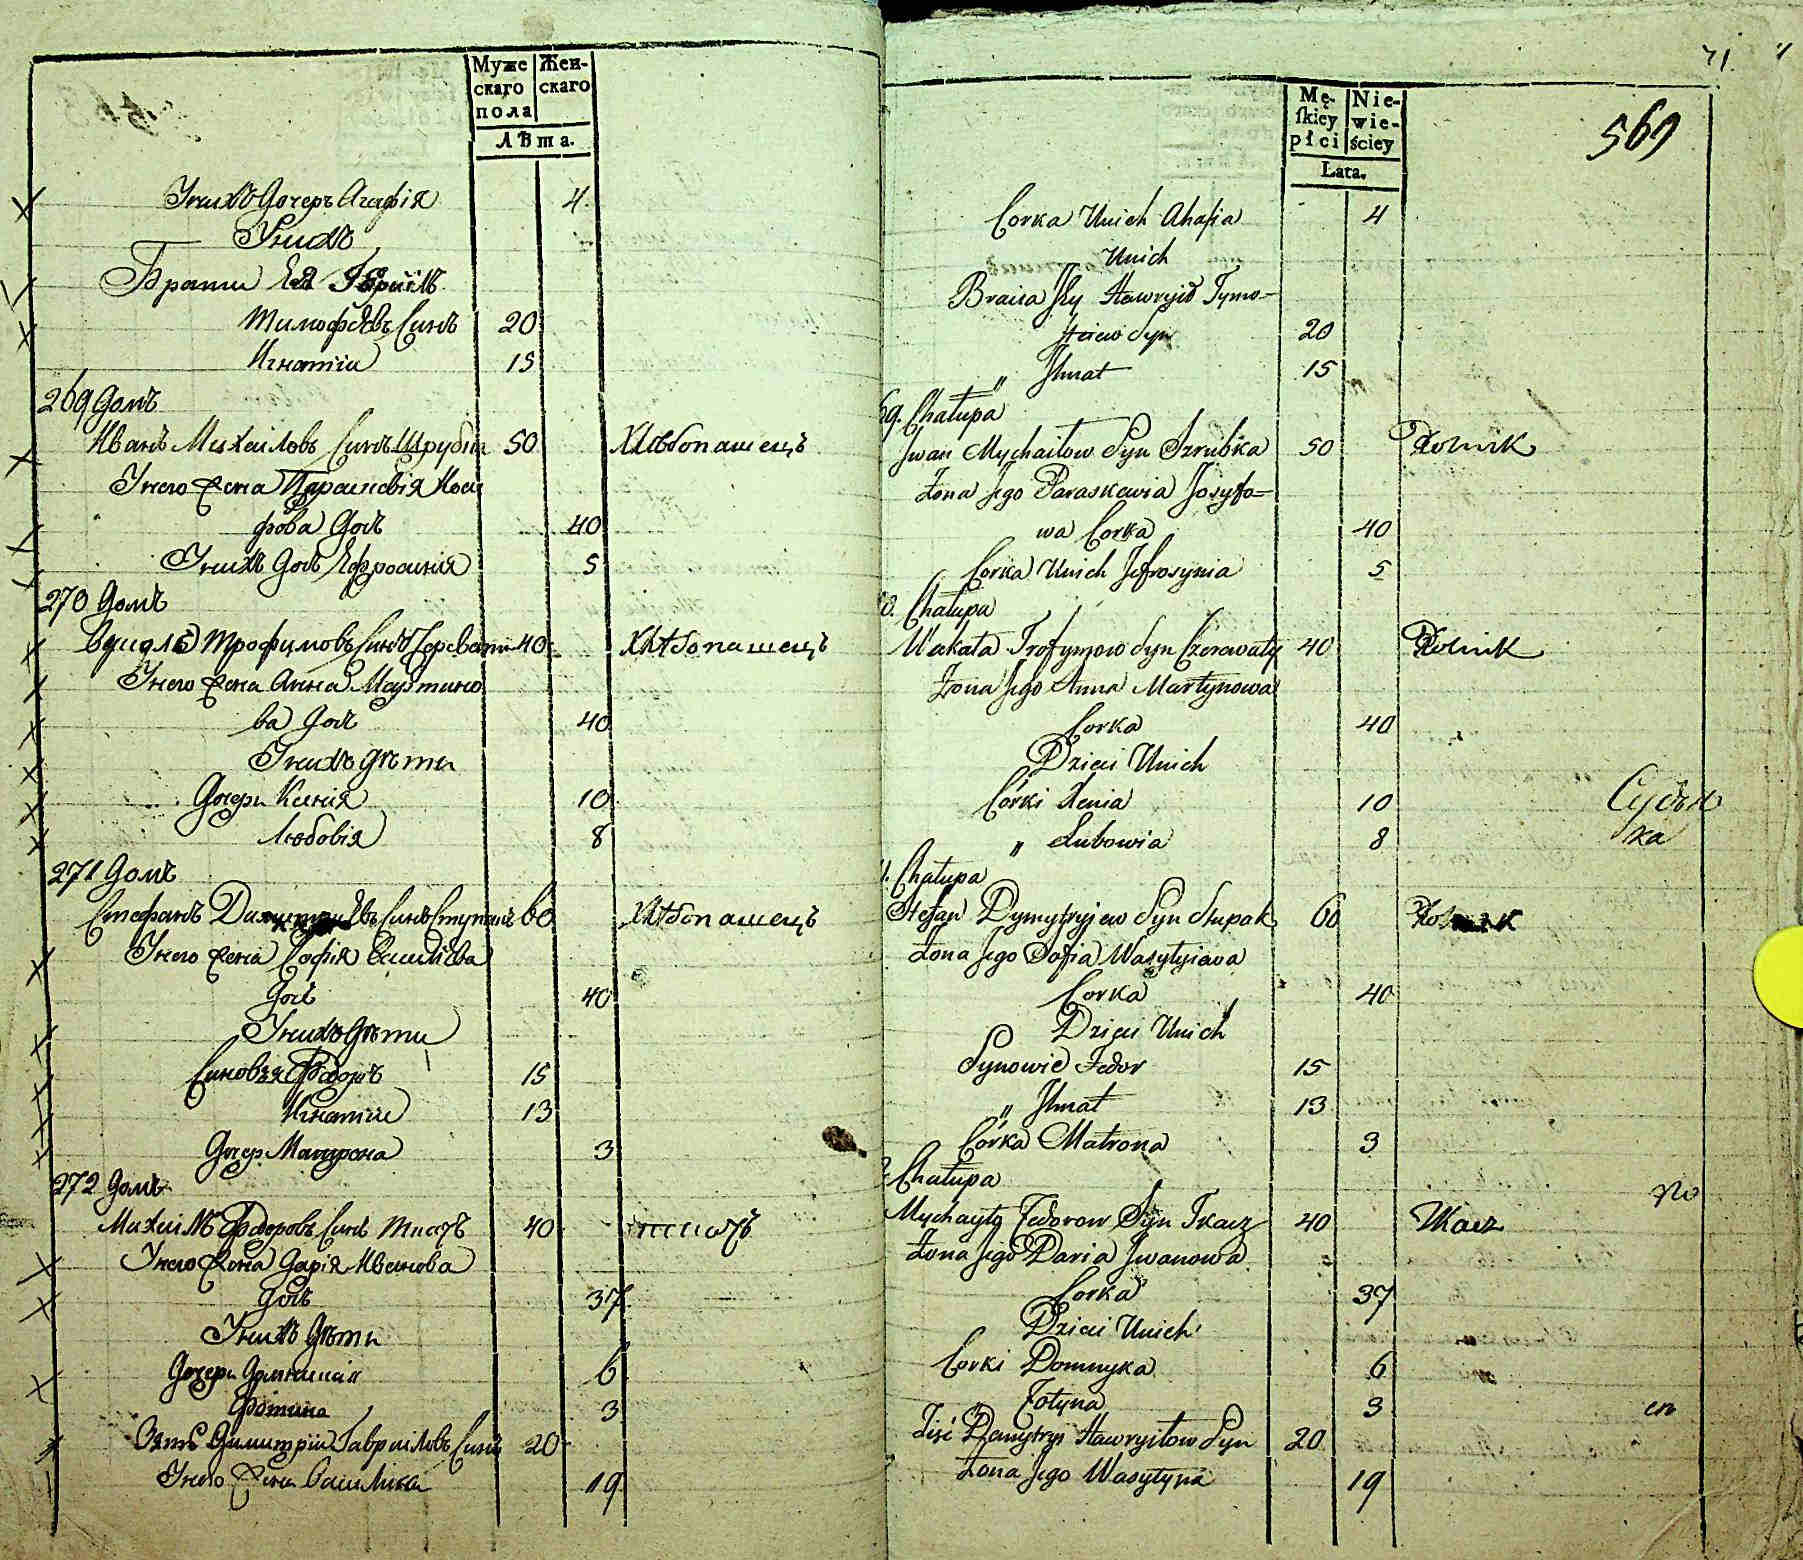 Муже
скаго
пола
Жен-
скаго
Лѣта.
Унихъ Дочерь Агафія 4
Унихъ
Брати Ея Гавріилъ
Тимофѣевъ Синъ 20
Игнатій 15
269 Домъ
Иванъ Михаиловъ Синъ Шрубка 50 Хлѣбопашецъ
Унего Жена Параскевія Иоси
фова Доч 40
Унихъ Доч Ефросинія 5
270 Домъ
Вукола Трофимовъ Синъ Череватий 40 Хлѣбопашецъ
Унего Жена Анна Мартино
ва Доч 40
Унихъ Дѣти
Дочери Ксенія 10
Любовія 8
271 Домъ
Стефанъ Синъ Ступакъ 60 Хлѣбопашецъ
Унего Жена Софія Василіева
Доч 40
Унихъ Дѣти
Синовья Феодоръ 15
Игнатій 13
Дочер Матрона 3
272 Домъ
Михаилъ Феодоровъ Синъ Ткачъ 40 ткачъ
Унего Жена Дарія Иванова
Доч 37
Унихъ Дѣти
Дочери Домникія 6
Фотина 3
Зять Димитрій Гавриловъ Синъ 20
Унего Жена Василина 19
71
569
Mę-
ſkiey
płci
Nie-
wie-
ściey
Lata.
Corka Unich Ahafia 4
Unich
Bracia Jey Hawryił Tymo-
Syn 20
" Ihnat 15
69. Chałupa
Iwan Mychaiłow Syn Szrubka 50 Rolnik
Żona Jego Paraskewia Josyfo=
wa Corka 40
Corka Unich Jefrosynia 5
0. Chałupa
Wakała Trofymow Syn Czerewaty 40 Rolnik
Żona Jego Anna Martynowa
Corka 40
Dzieci Unich
Córki Xenia 10
" Lubowia 8
1. Chałupa
Stefan Dymytryjew Syn Stupak 60 Rolnik
Żona Jego Sofia Wasylyiawa
Corka 40
Dzieci Unich
Synowie Fedor 15
" Ihnat 13
Córka Matrona 3
2. Chałupa
Mychayło Fedorow Syn Tkacz 40 Tkacz
Żona Jego Daria Iwanowa
Corka 37
Dzieci Unich
Corki Domnyka 6
" Fotyna 3
Ziść Demytryi Hawryiłow Syn 20
Żona Jego Wasylyna 19